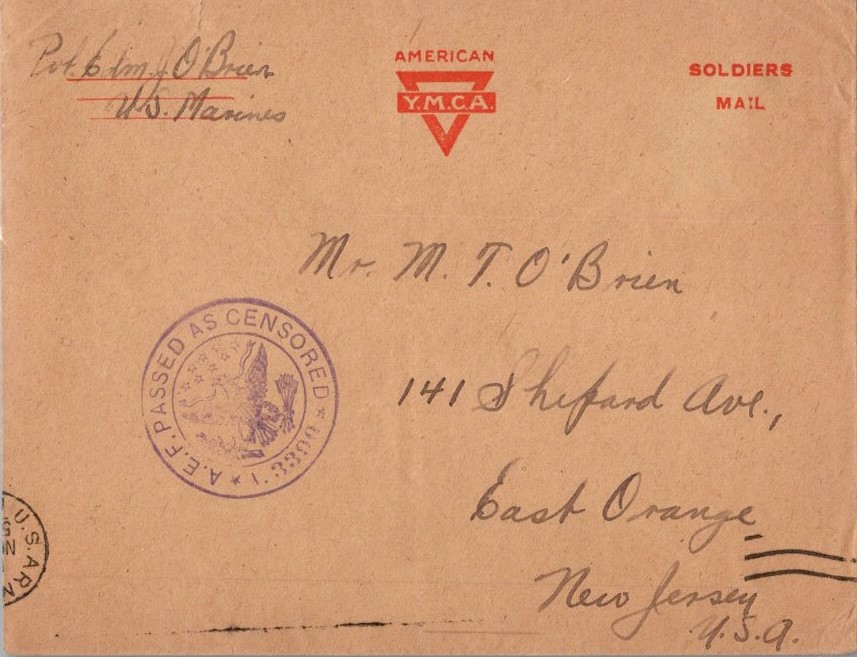 Pvt. Edm. J. O'Brien
U.S. Marines
AMERICAN
Y.M.C.A.
SOLDIERS
MAIL
Mr. M. T. O'Brien
141 Shepard Ave.,
East Orange
New Jersey
U.S.A.
A.E.F. PASSED AS CENSORED
U.S. ARM